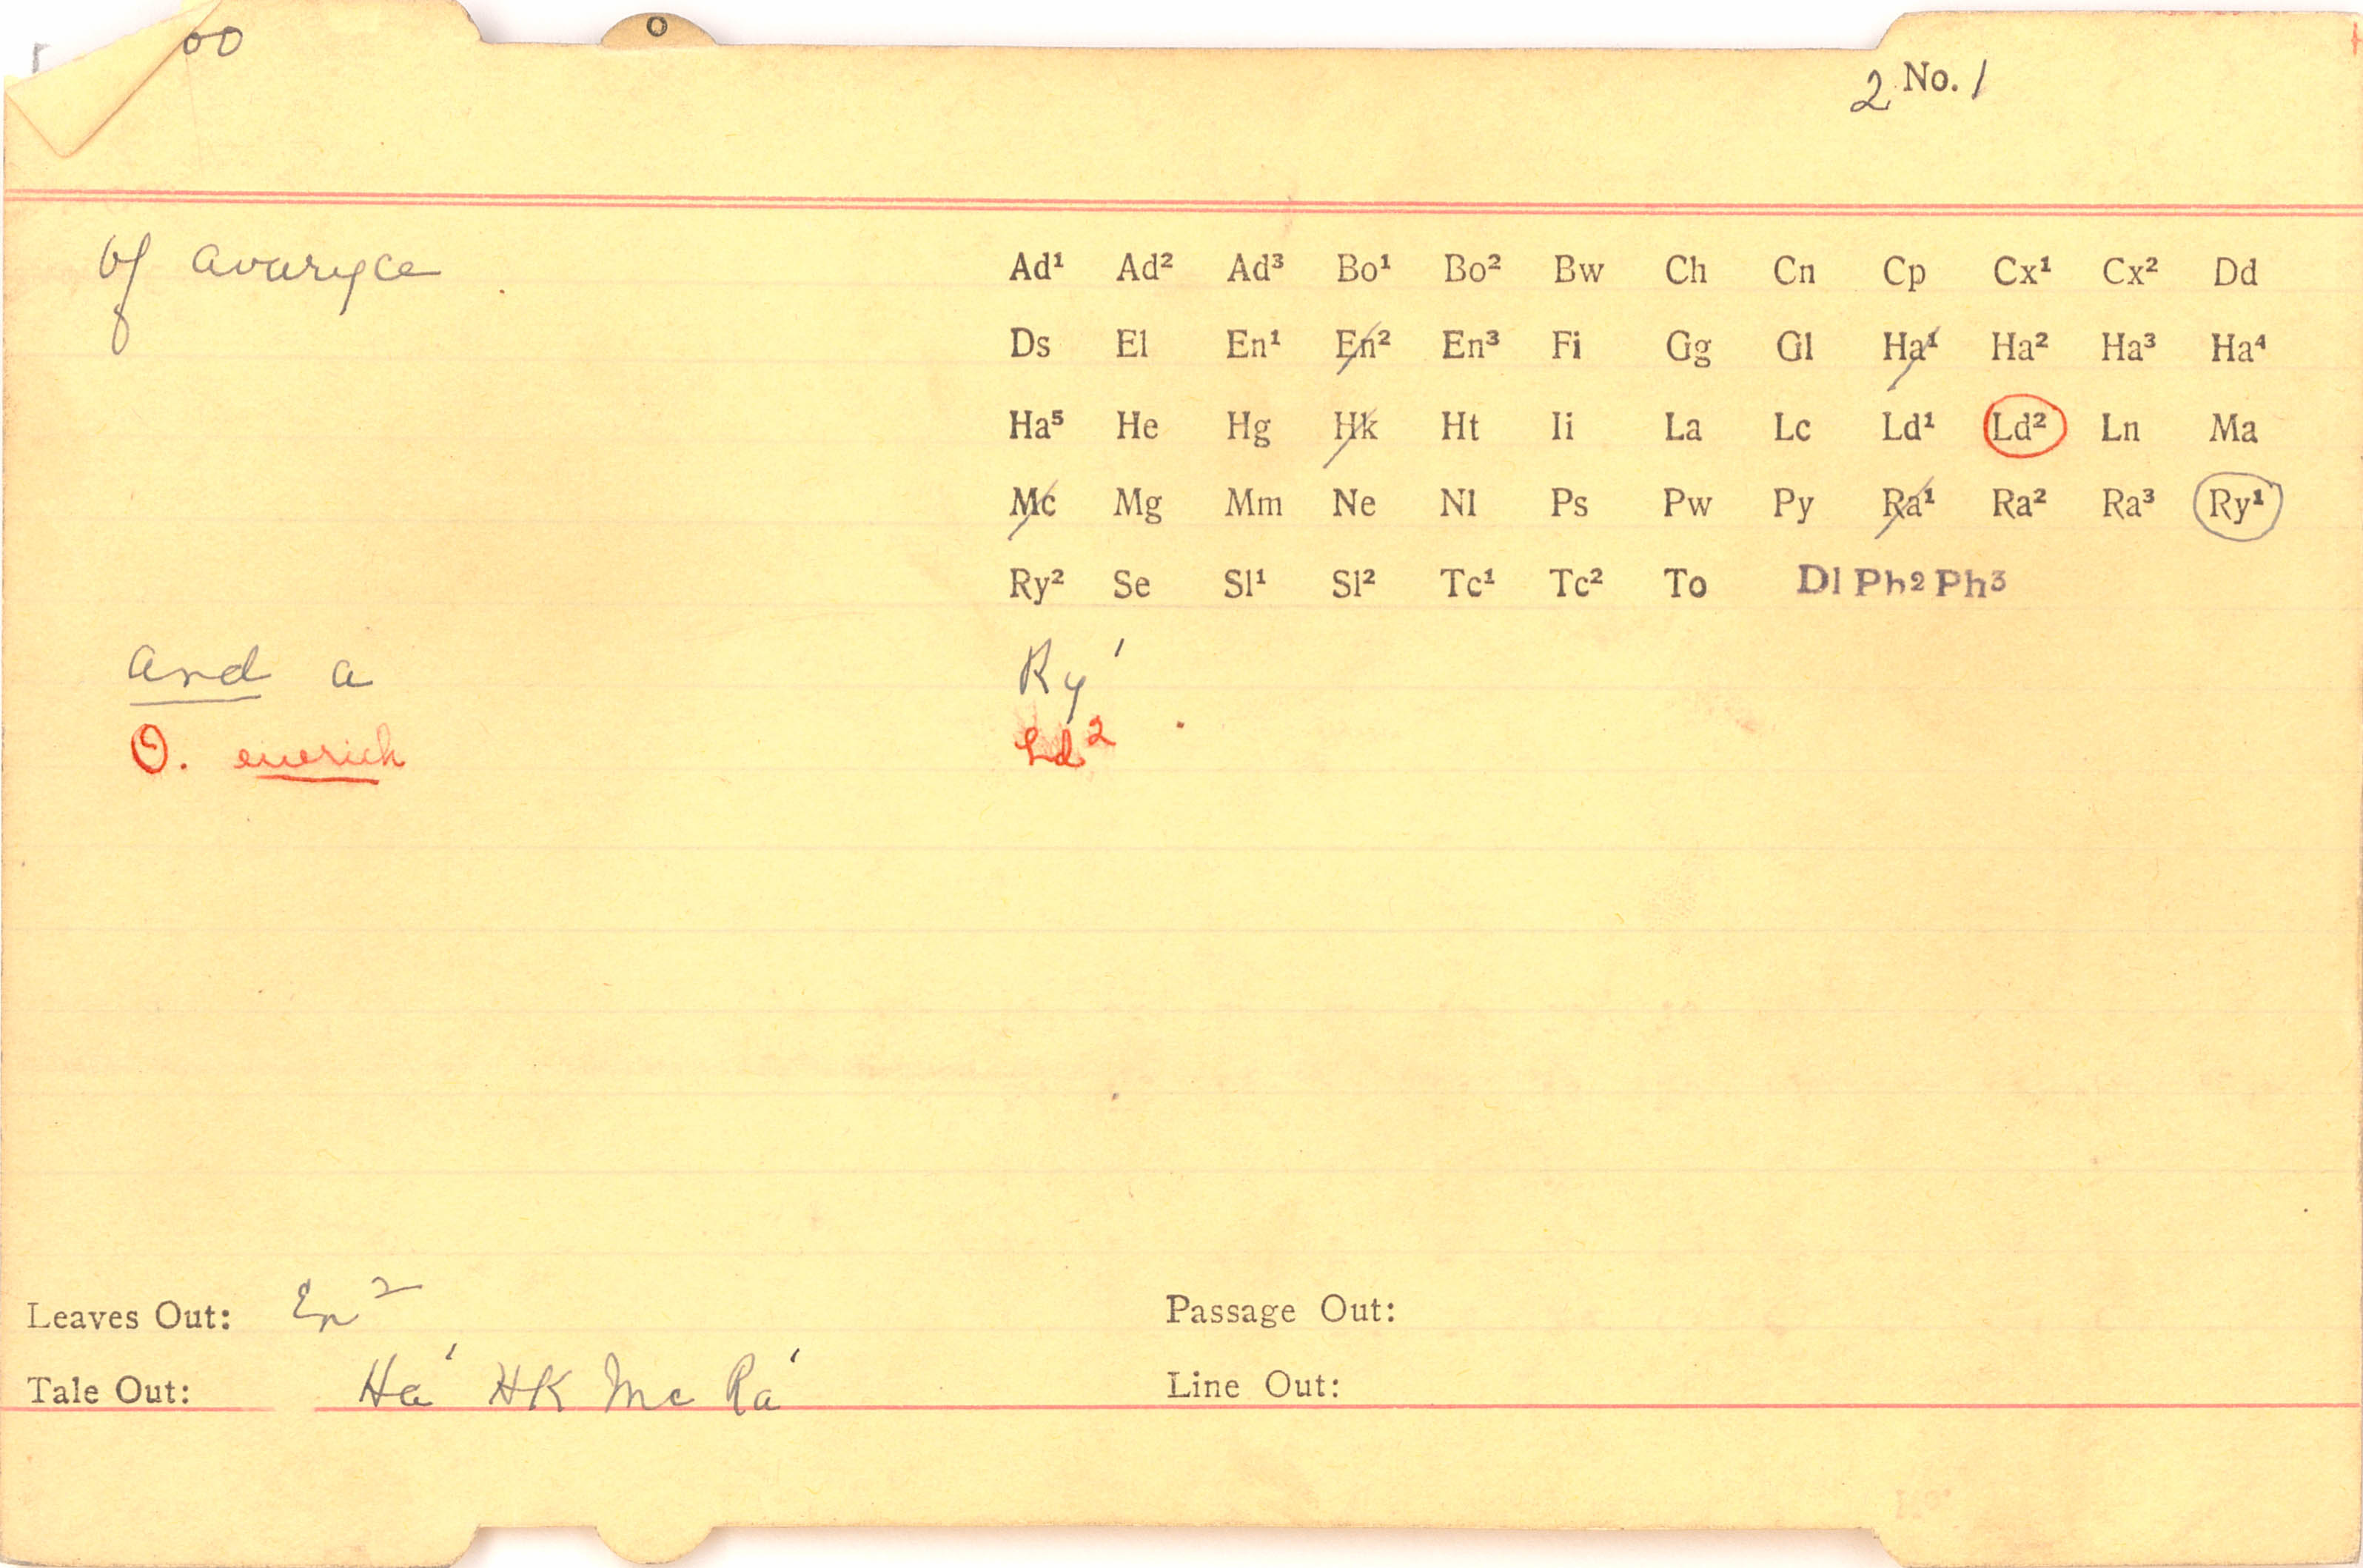 00
2 No. 1
of avaryce
Ad¹ Ad² Ad³ Bo¹ Bo² Bw Ch Cn Cp Cx¹ Cx² Dd
Ds El En¹ En² En³ Fi Gg Gl Ha¹ Ha² Ha³ Ha⁴
Ha⁵ He Hg Hk Ht Ii La Lc Ld¹ Ld² Ln Ma
Mc Mg Mm Ne Nl Ps Pw Py Ra¹ Ra² Ra³ Ry¹
Ry² Se Sl¹ Sl² Tc¹ Tc² To Dl Ph2 Ph3
and a Ry¹
O. euerich Ld²
Leaves Out: En² Passage Out:
Tale Out: Ha¹ Hk Mc Ra¹ Line Out: